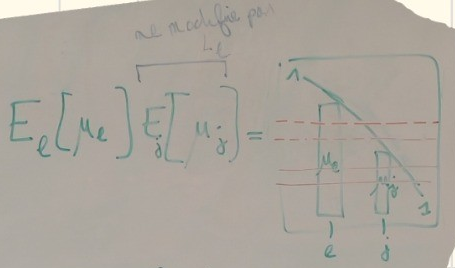 ne modifie pas
L_e
E_e[μ_e] E_j[μ_j] =
1
μ_e μ_j
1
e j